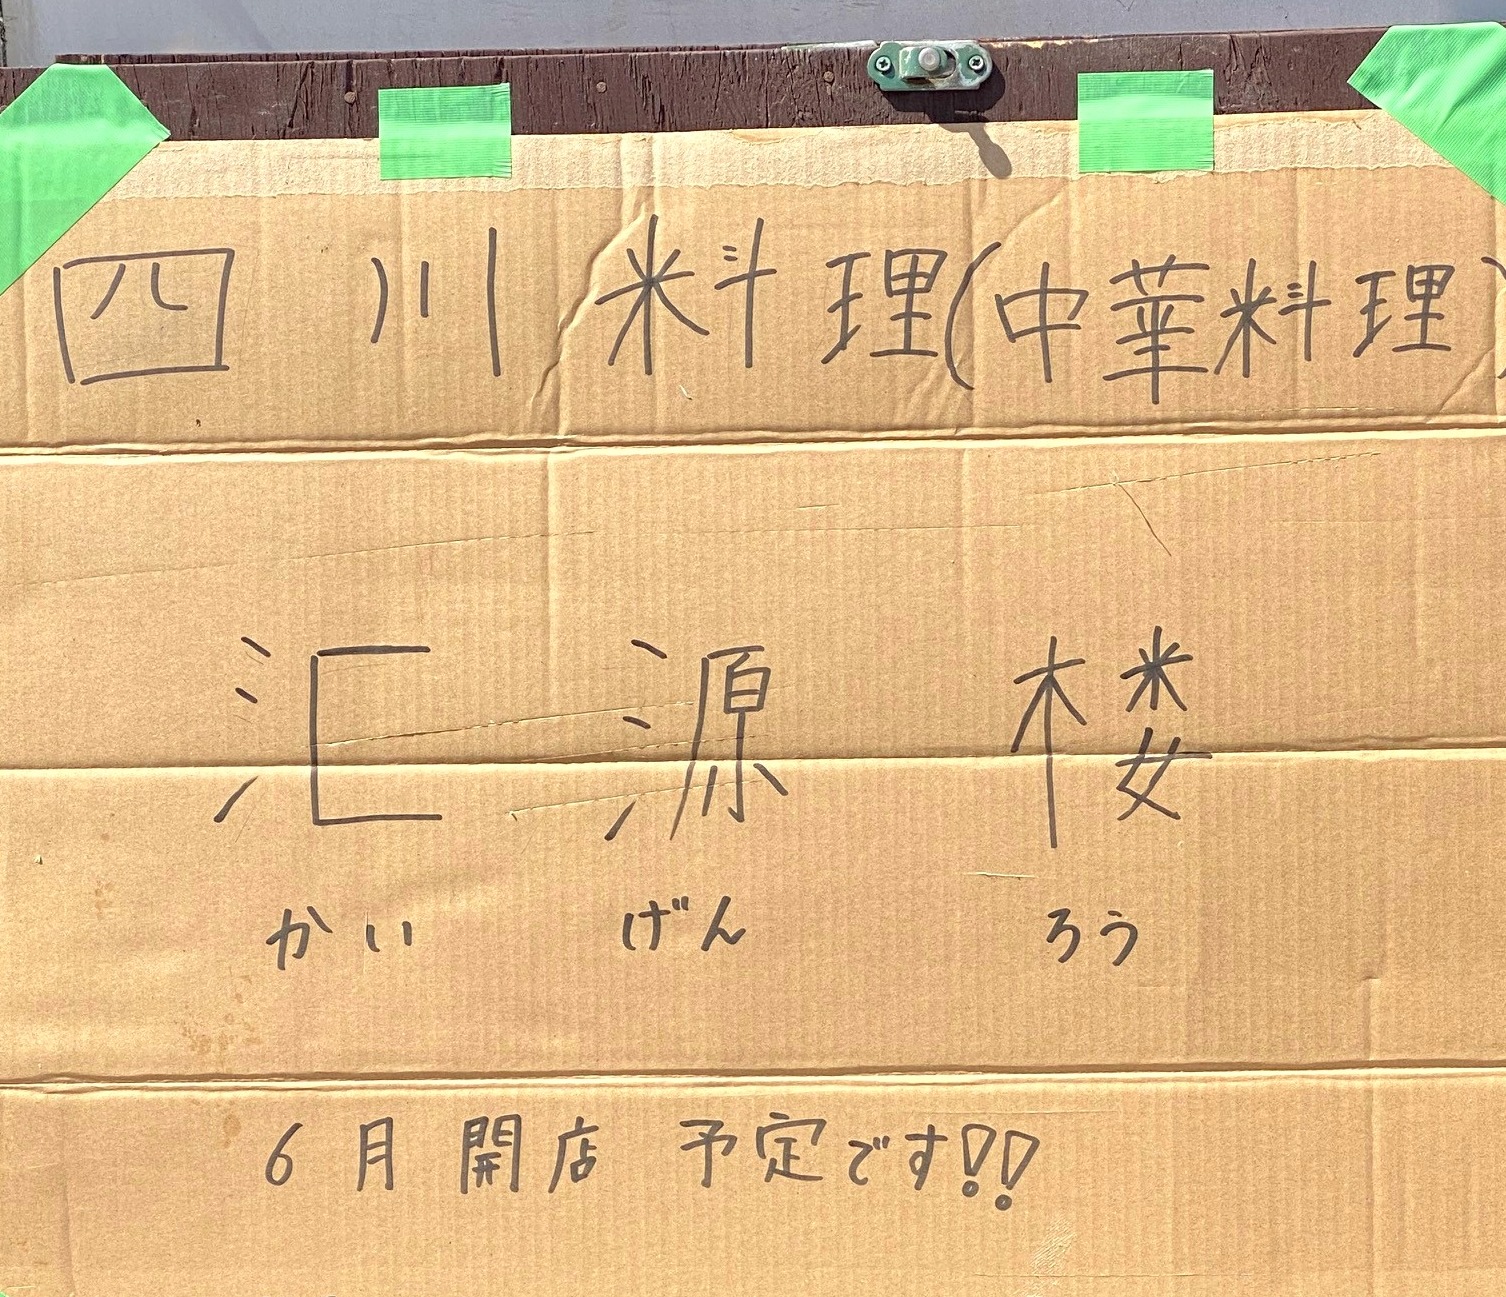 四川料理(中華料理)
汇源楼
かいげんろう
6月開店予定です!!